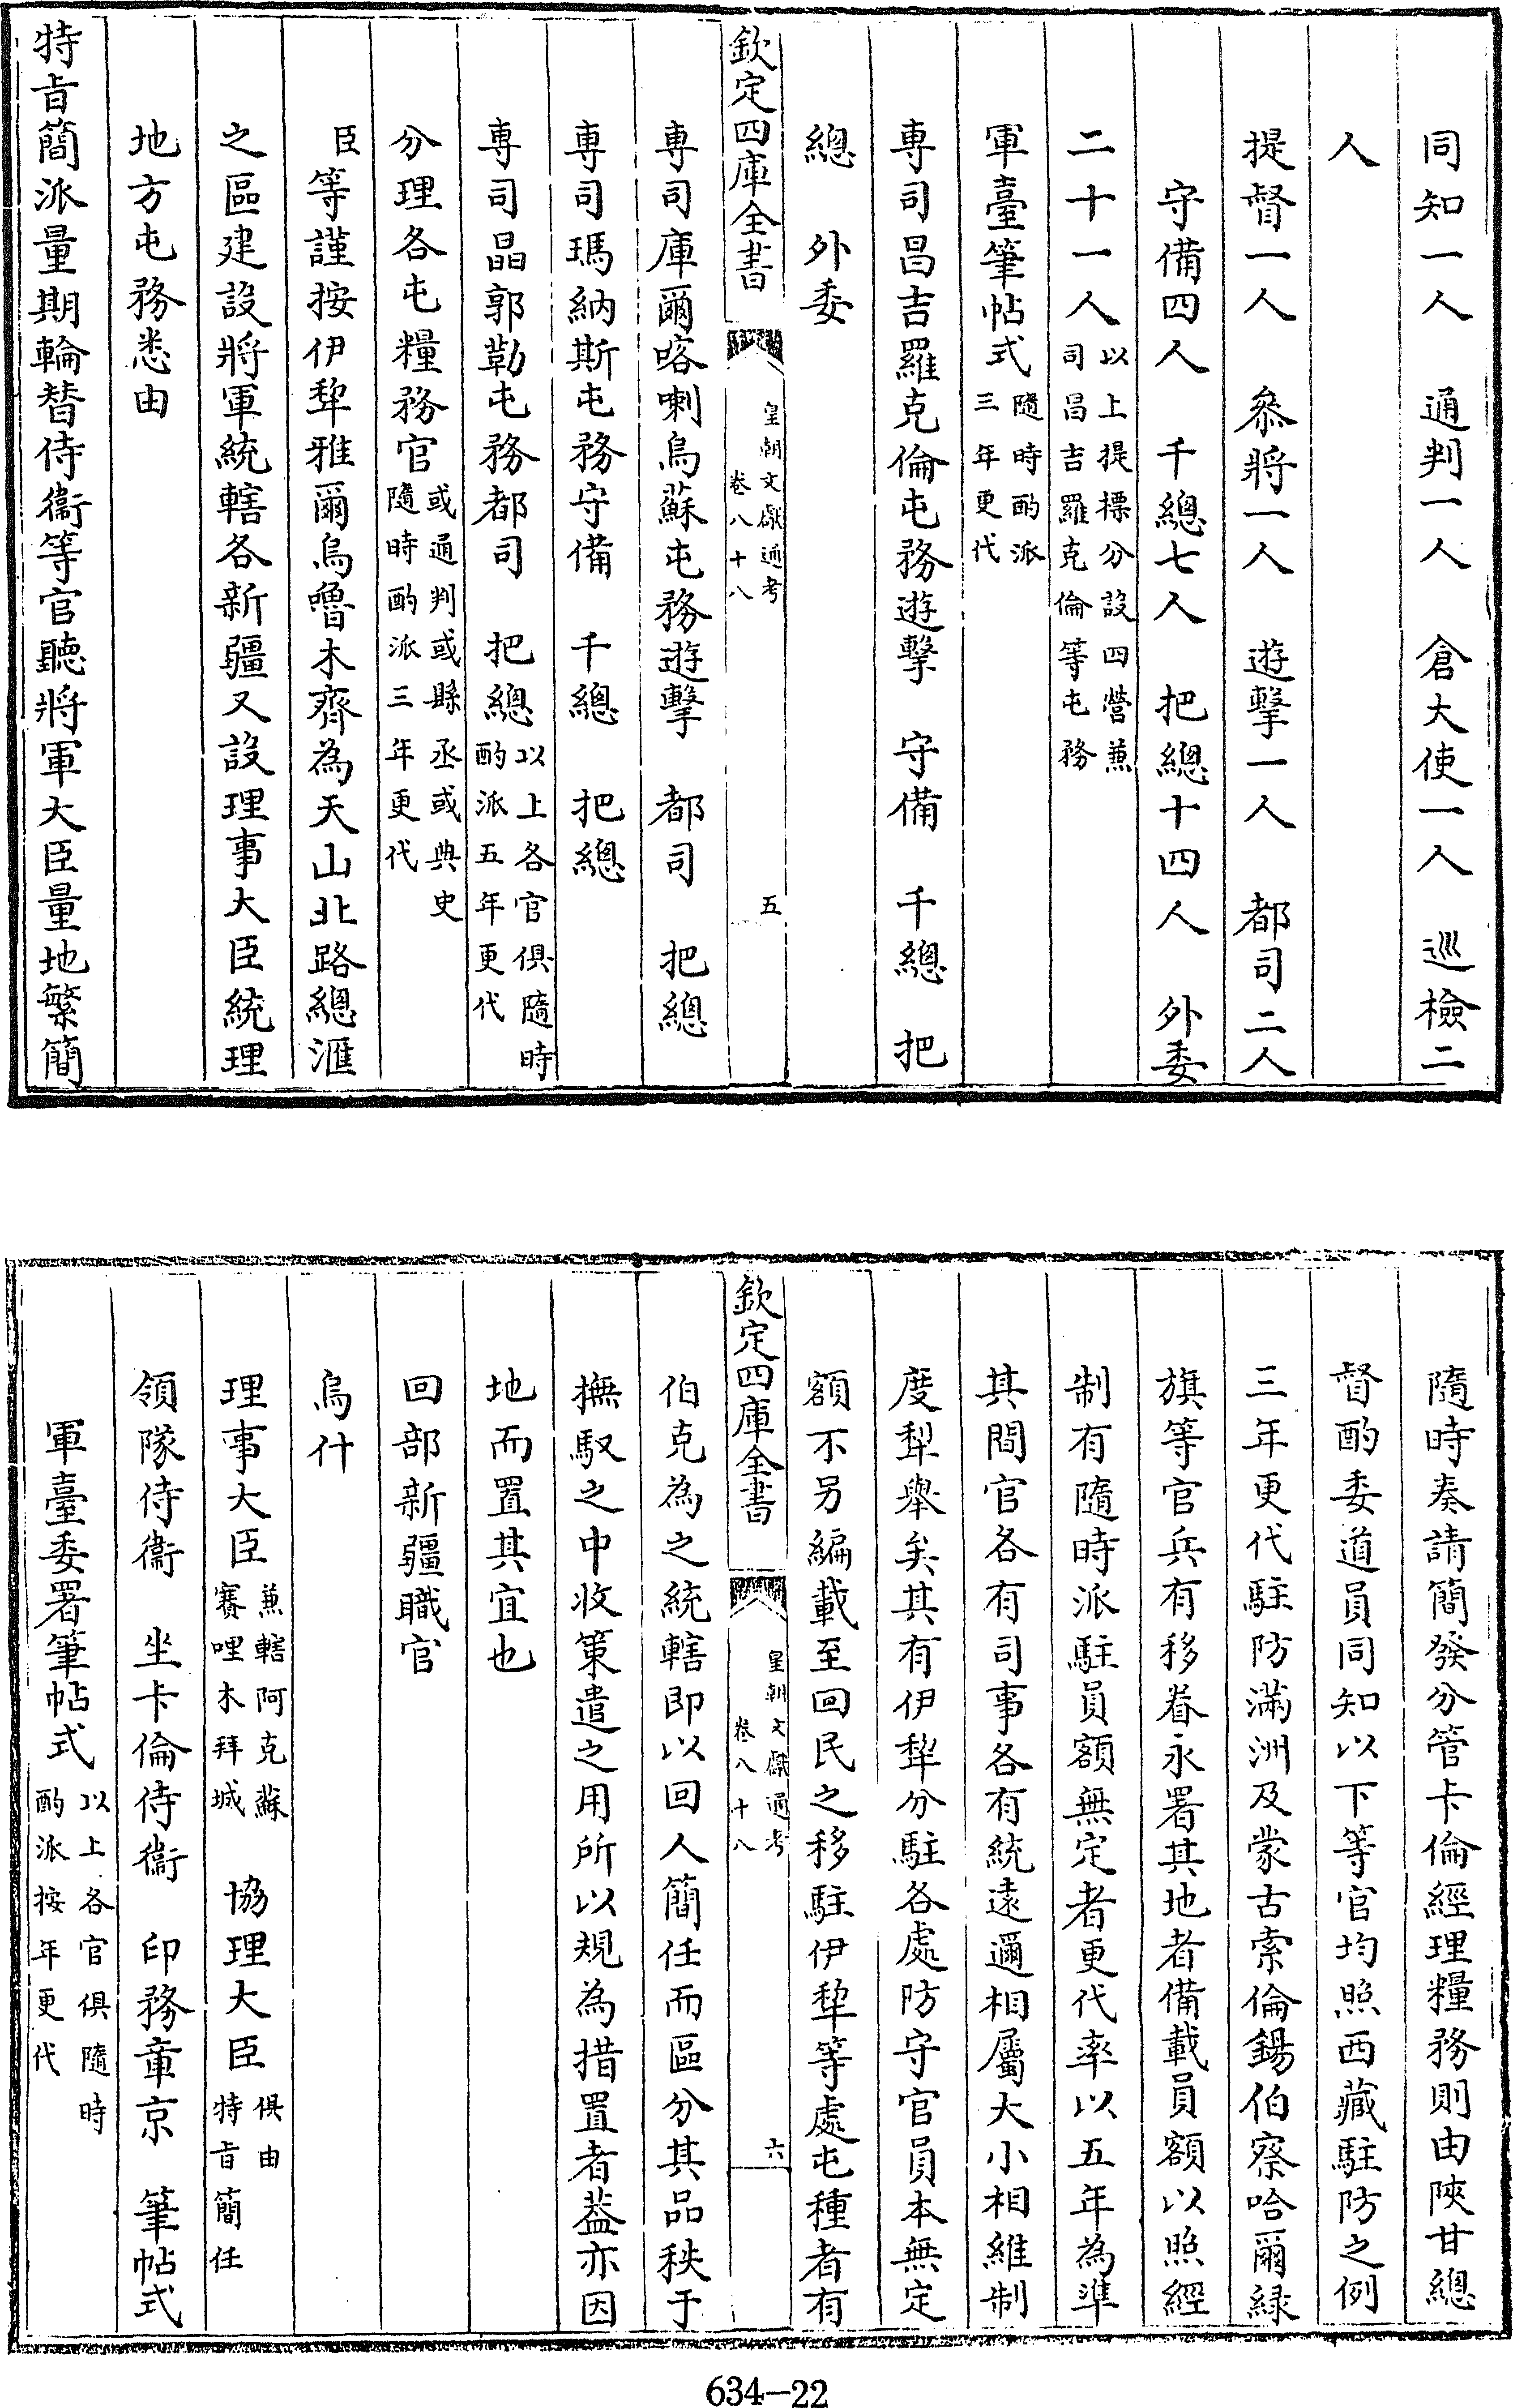 同知一人　通判一人　倉大使一人　巡檢二
人
提督一人　叅將一人　遊擊一人　都司二人
守備四人　千總七人　把總十四人　外委
二十一人以上提標分設四營兼司昌吉羅克倫等屯務
軍臺筆帖式隨時酌派三年更代
専司昌吉羅克倫屯務遊擊　守備　千總　把
總　外委
欽定四庫全書　皇朝文獻通考卷八十八　五
専司庫爾喀喇烏蘇屯務遊擊　都司　把總
専司瑪納斯屯務守備　千總　把總
専司晶郭勒屯務都司　把總以上各官俱隨時酌派五年更代
分理各屯糧務官或通判或縣丞或典史隨時酌派三年更代
臣等謹按伊犂雅爾烏嚕木齊為天山北路總滙
之區建設將軍統轄各新疆又設理事大臣統理
地方屯務悉由
特旨簡派量期輪替侍衞等官聽將軍大臣量地繁簡
隨時奏請簡發分管卡倫經理糧務則由陜甘總
督酌委道員同知以下等官均照西藏駐防之例
三年更代駐防滿洲及蒙古索倫錫伯察哈爾緑
旗等官兵有移眷永署其地者備載員額以照經
制有隨時派駐員額無定者更代率以五年為準
其間官各有司事各有統遠邇相屬大小相維制
度犂舉矣其有伊犂分駐各處防守官員本無定
額不另編載至回民之移駐伊犂等處屯種者有
欽定四庫全書　皇朝文獻通考卷八十八　六
伯克為之統轄即以回人簡任而區分其品秩于
撫馭之中收策遣之用所以規為措置者蓋亦因
地而置其宜也
回部新疆職官
烏什
理事大臣兼轄阿克蘇賽哩木拜城　協理大臣俱由特旨簡任
領隊侍衞　坐卡倫侍衞　印務章京　筆帖式
軍臺委署筆帖式以上各官俱隨時酌派按年更代
634-22